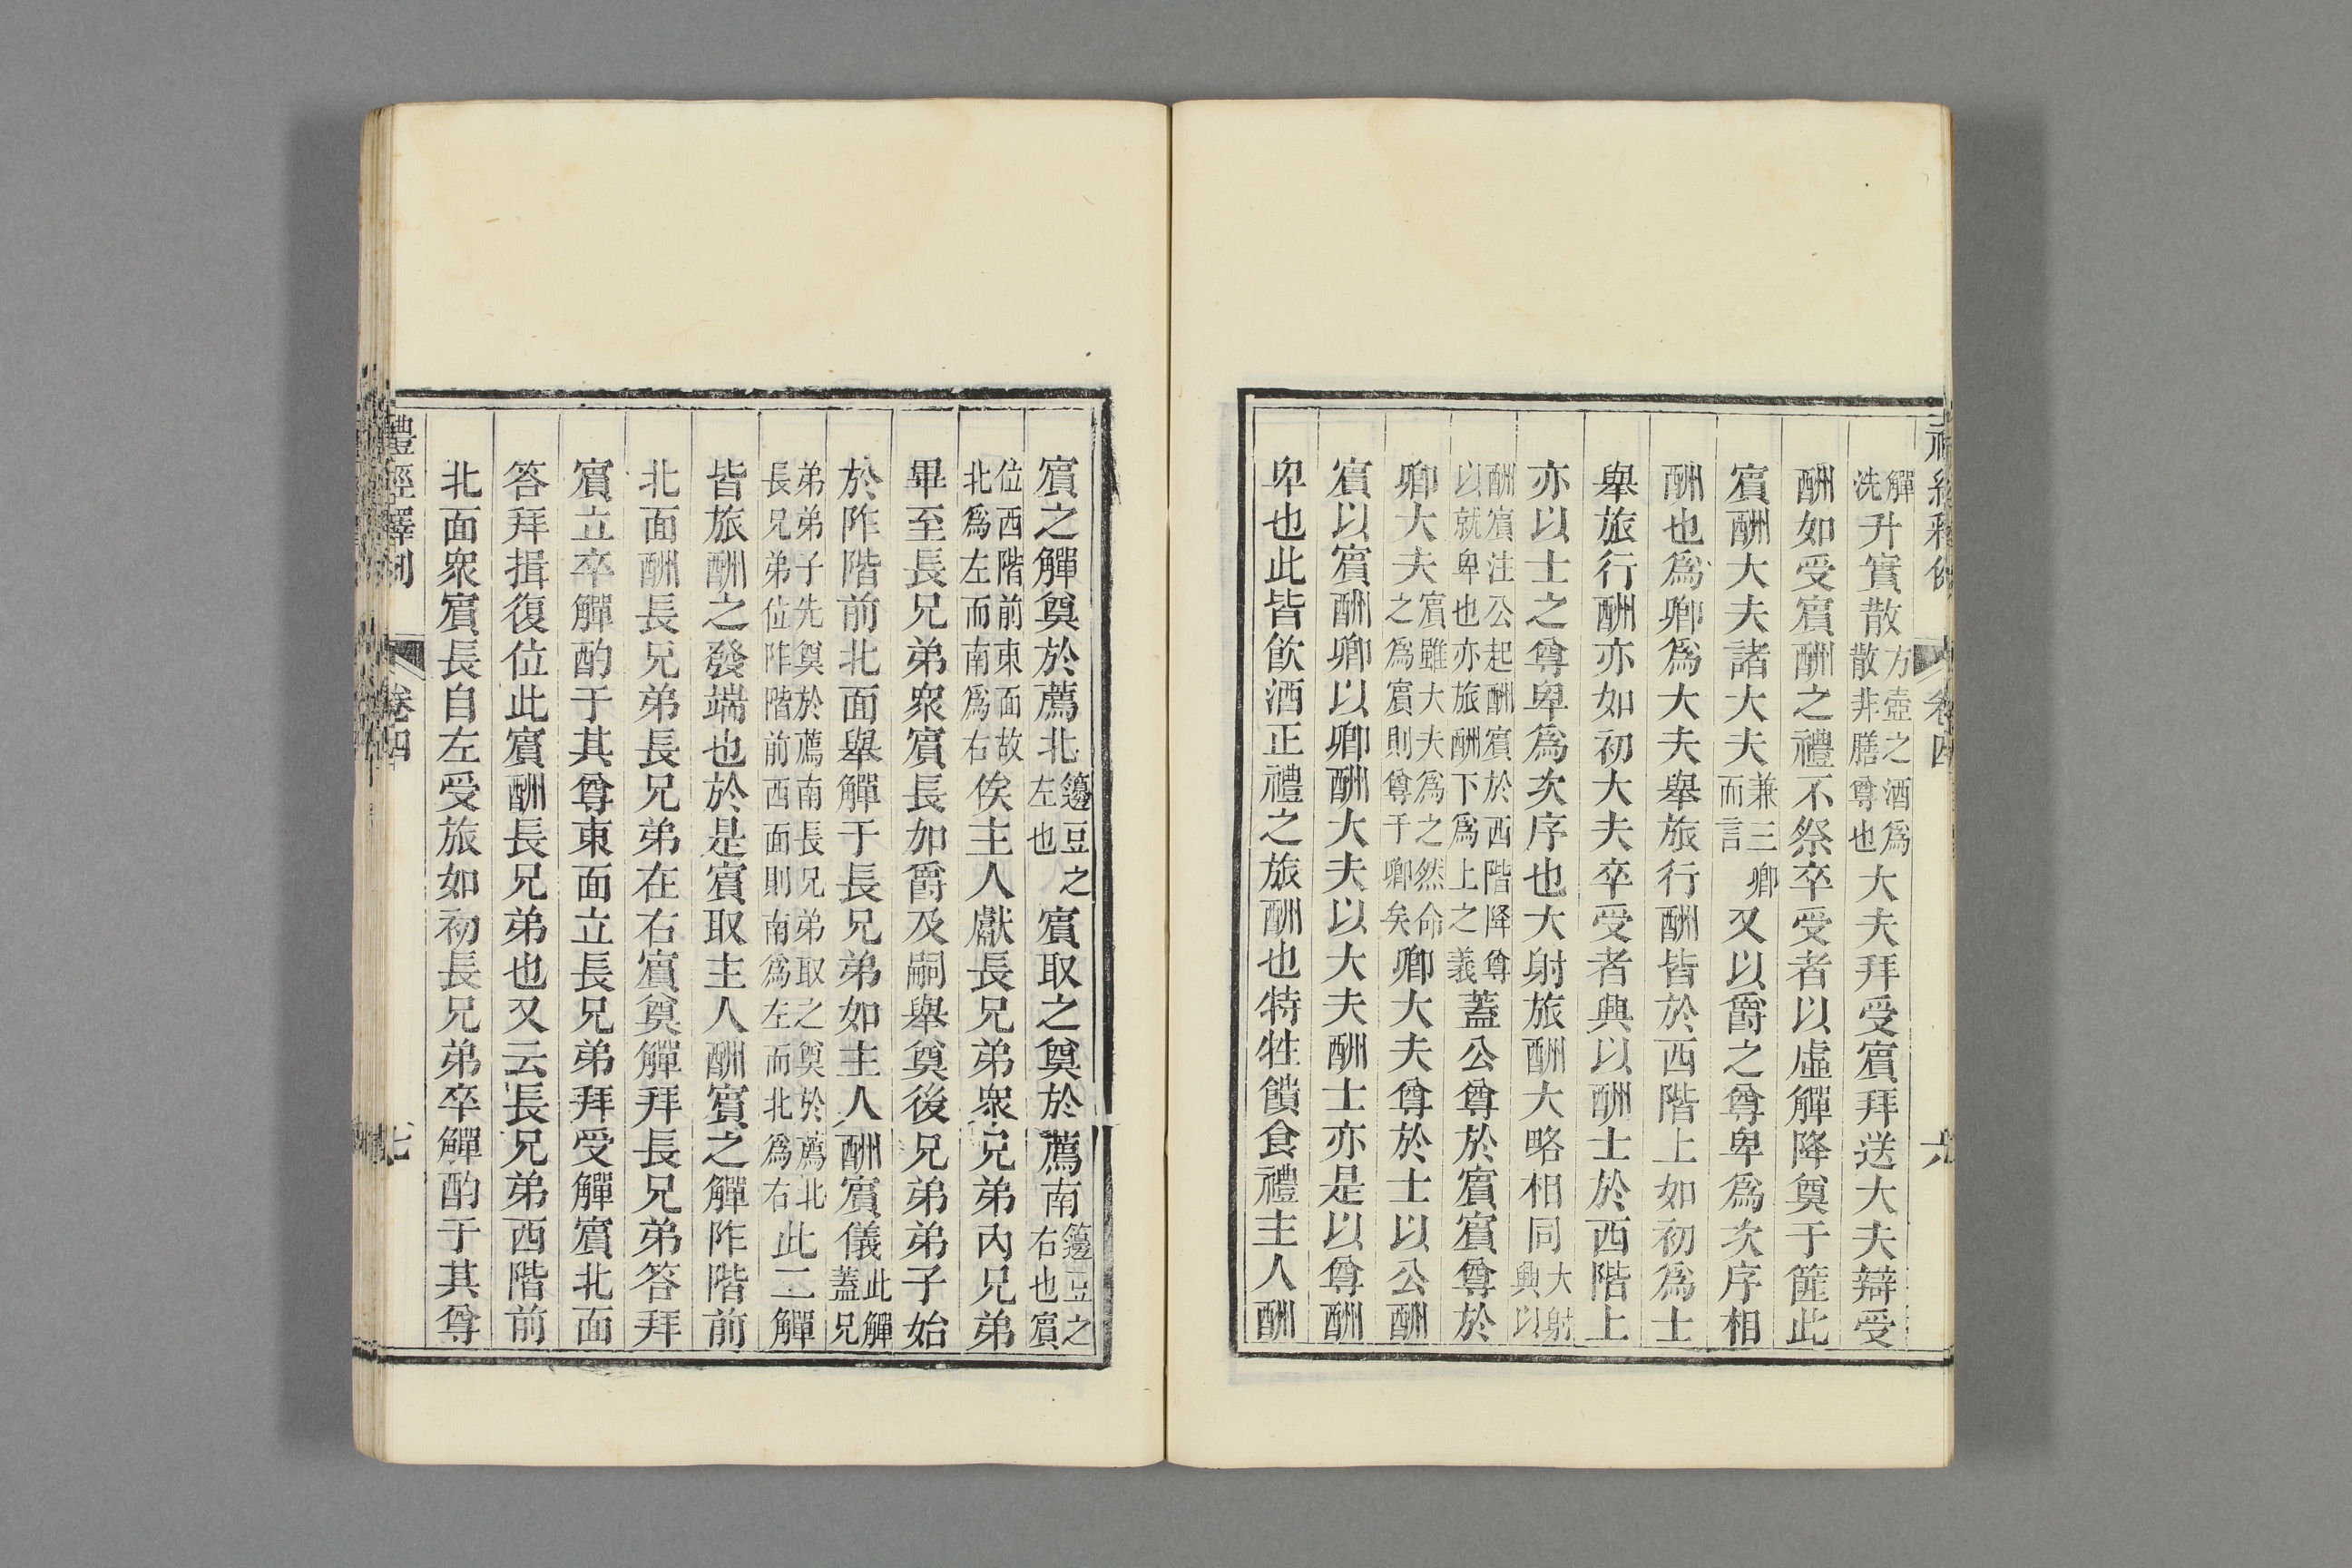 禮經釋例 卷四 六
觶洗升實散方壺之酒爲散非膳尊也大夫拜受賓拜送大夫辯受
酬如受賓酬之禮不祭卒受者以虛觶降奠于篚此
賓酬大夫諸大夫兼三卿而言又以爵之尊卑爲次序相
酬也爲卿爲大夫舉旅行酬皆於西階上如初爲士
舉旅行酬亦如初大夫卒受者興以酬士於西階上
亦以士之尊卑爲次序也大射旅酬大略相同大射興以
酬賓注公起酬賓於西階降尊以就卑也亦旅酬下爲上之義蓋公尊於賓賓尊於
卿大夫賓雖大夫爲之然命之爲賓則尊于卿矣卿大夫尊於士以公酬
賓以賓酬卿以卿酬大夫以大夫酬士亦是以尊酬
卑也此皆飲酒正禮之旅酬也特牲饋食禮主人酬
賓之觶奠於薦北籩豆之左也賓取之奠於薦南籩豆之右也賓
位西階前東面故北爲左而南爲右俟主人獻長兄弟衆兄弟內兄弟
畢至長兄弟衆賓長加爵及嗣舉奠後兄弟弟子始
於阼階前北面舉觶于長兄弟如主人酬賓儀此觶蓋兄
弟弟子先奠於薦南長兄弟取之奠於薦北長兄弟位阼階前西面則南爲左而北爲右此二觶
皆旅酬之發端也於是賓取主人酬賓之觶阼階前
北面酬長兄弟長兄弟在右賓奠觶拜長兄弟答拜
賓立卒觶酌于其尊東面立長兄弟拜受觶賓北面
答拜揖復位此賓酬長兄弟也又云長兄弟西階前
北面衆賓長自左受旅如初長兄弟卒觶酌于其尊
禮經釋例 卷四 七